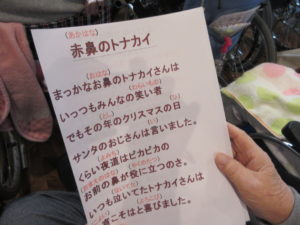 (あかはな)
赤鼻のトナカイ
(おはな)
まっかなお鼻のトナカイさんは
(わらいもの)
いっつもみんなの笑い者
(とし) (ひ)
でもその年のクリスマスの日
(い)
サンタのおじさんは言いました。
(よみち)
くらい夜道はピカピカの
(おまえのはな) (やくのたつ)
お前の鼻が役に立つのさ。
(ないてた)
いつも泣いてたトナカイさんは
(よろこび)
こそはと喜びました。